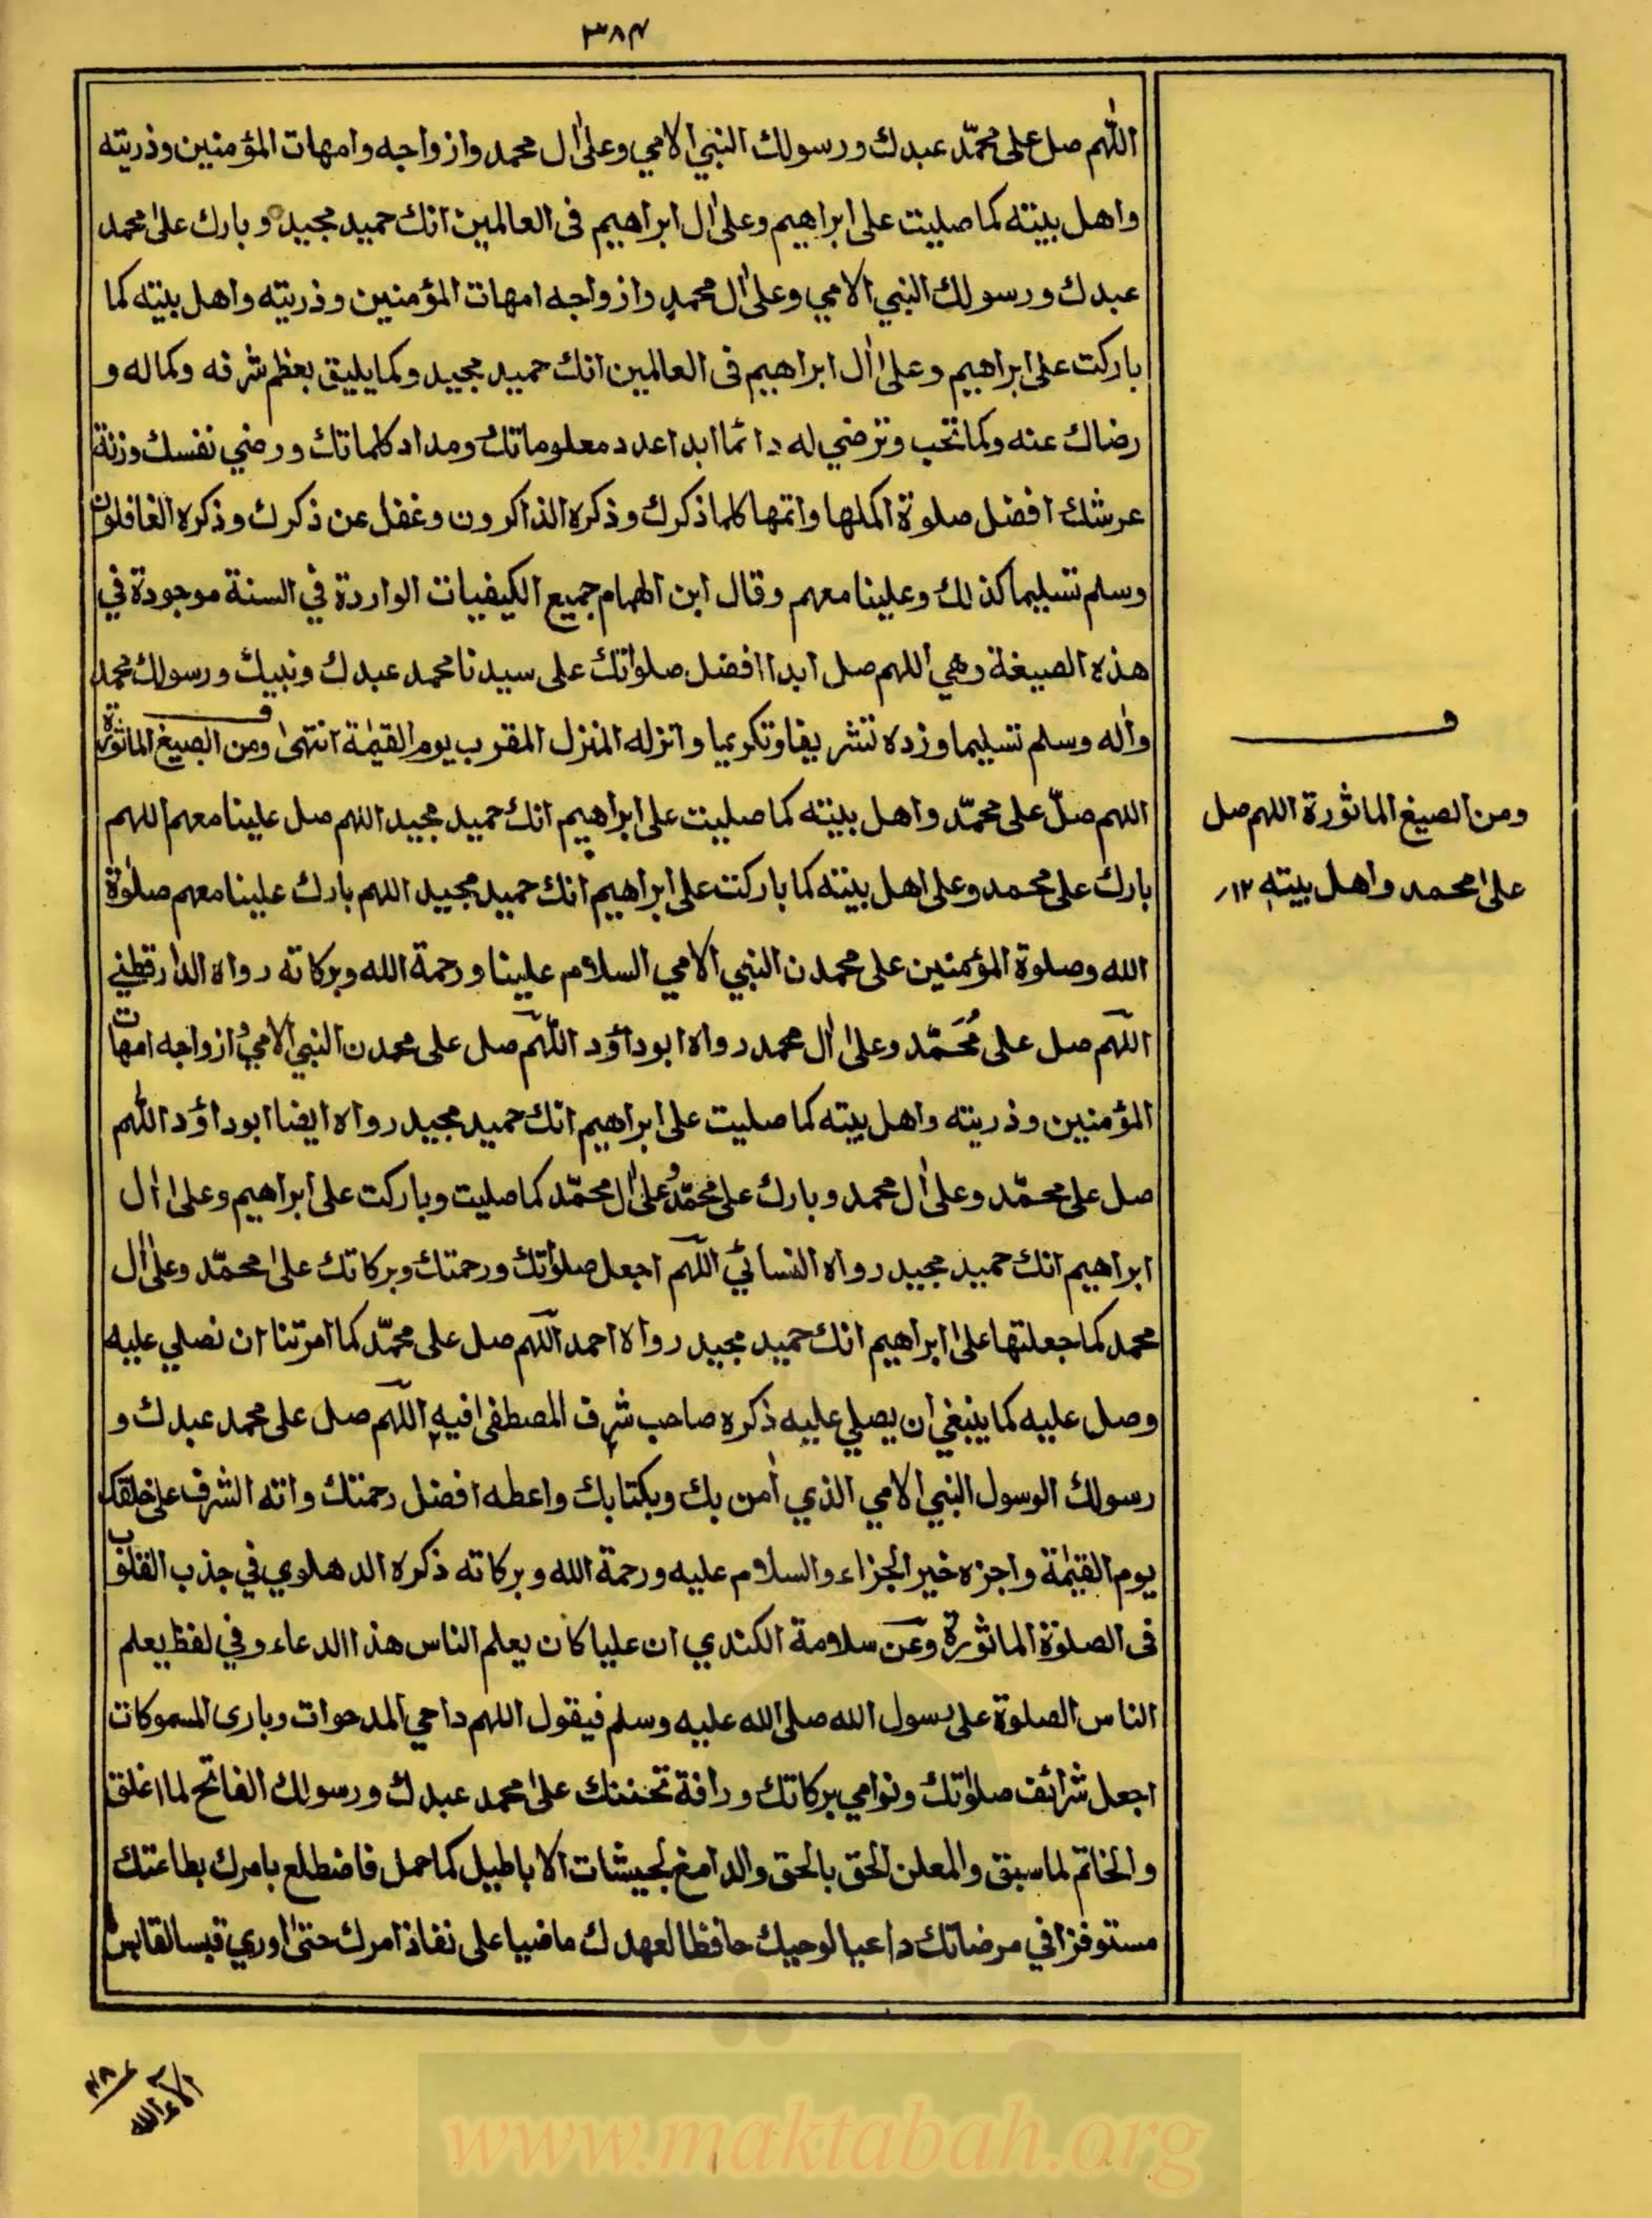 ٣٨٤
اللّٰهم صل على محمّد عبدك ورسولك النبي الامي وعلىٰ اٰل محمد وازواجه وامهات المؤمنين وذريته
واهل بيته كما صليت على ابراهيم وعلىٰ اٰل ابراهيم فى العالمين انك حميد مجيد وبارك علىٰ محمد
عبدك ورسولك النبي الامي وعلىٰ اٰل محمدٍ وازواجه امهات المؤمنين وذريته واهل بيته كما
باركت على ابراهيم وعلىٰ اٰل ابراهيم فى العالمين انك حميد مجيد وكما يليق بعظم شرفه وكماله و
رضاك عنه وكما تحب وترضي له دائما ابدا عدد معلوماتك ومداد كلماتك ورضي نفسك وزنة
عرشك افضل صلوة اكملها واتمها كلما ذكرك وذكره الذاكرون وغفل عن ذكرك وذكره الغافلون
وسلم تسليما كذلك وعلينا معهم وقال ابن الهمام جميع الكيفيات الواردة في السنة موجودة في
هذه الصيغة وهي اللهم صل ابدا افضل صلواتك على سيدنا محمد عبدك ونبيك ورسولك محمد
واٰله وسلم تسليما وزده تشريفا وتكريما وانزله المنزل المقرب يوم القيٰمة انتهىٰ ومن الصيغ الماثورة
اللهم صلّ على محمّد واهل بيته كما صليت على ابراهيم انك حميد مجيد اللهم صل علينا معهم اللهم
بارك على محمد وعلى اهل بيته كما باركت على ابراهيم انك حميد مجيد اللهم بارك علينا معهم صلوٰة
الله وصلوة المؤمنين على محمدن النبي الامي السلام علينا ورحمة الله وبركاته رواه الدارقطني
اللّهم صل على مُحَمّد وعلىٰ اٰل محمد رواه ابو داؤد اللّهم صل على محمدن النبي الامي وازواجه امهات
المؤمنين وذريته واهل بيته كما صليت على ابراهيم انك حميد مجيد رواه ايضا ابو داؤد اللّٰهم
صل على محمّد وعلىٰ اٰل محمد وبارك على محمّد وعلىٰ اٰل محمّد كما صليت وباركت على ابراهيم وعلىٰ اٰل
ابراهيم انك حميد مجيد رواه النسائي اللّهم اجعل صلوٰتك ورحمتك وبركاتك علىٰ محمّد وعلىٰ اٰل
محمد كما جعلتها علىٰ ابراهيم انك حميد مجيد رواه احمد اللّهم صل على محمّد كما امرتنا ان نصلي عليه
وصل عليه كما ينبغي ان يصلي عليه ذكره صاحب شرف المصطفى افيه اللّهم صل على محمد عبدك و
رسولك الرسول النبي الامي الذي اٰمن بك وبكتابك واعطه افضل رحمتك واته الشرف على خلقك
يوم القيٰمة واجزه خير الجزاء والسلام عليه ورحمة الله وبركاته ذكره الدهلوي في جذب القلوب
فى الصلوٰة الماثورة وعن سلامة الكندي ان عليا كان يعلم الناس هذا الدعاء وفي لفظ يعلم
الناس الصلوة على رسول الله صلى الله عليه وسلم فيقول اللهم داحي المدحوات وبارى المسموكات
اجعل شرائف صلوٰتك ونوامي بركاتك ورافة تحننك علىٰ محمد عبدك ورسولك الفاتح لما اغلق
والخاتم لما سبق والمعلن الحق بالحق والدامغ لجيشات الاباطيل كما حمل فاضطلع بامرك بطاعتك
مستوفزا في مرضاتك داعيا لوحيك حافظا لعهدك ماضيا على نفاذ امرك حتىٰ اوري قبسا لقابس
ومن الصيغ الماثورة اللهم صل
علىٰ محمد واهل بيته ١٢
www.maktabah.org